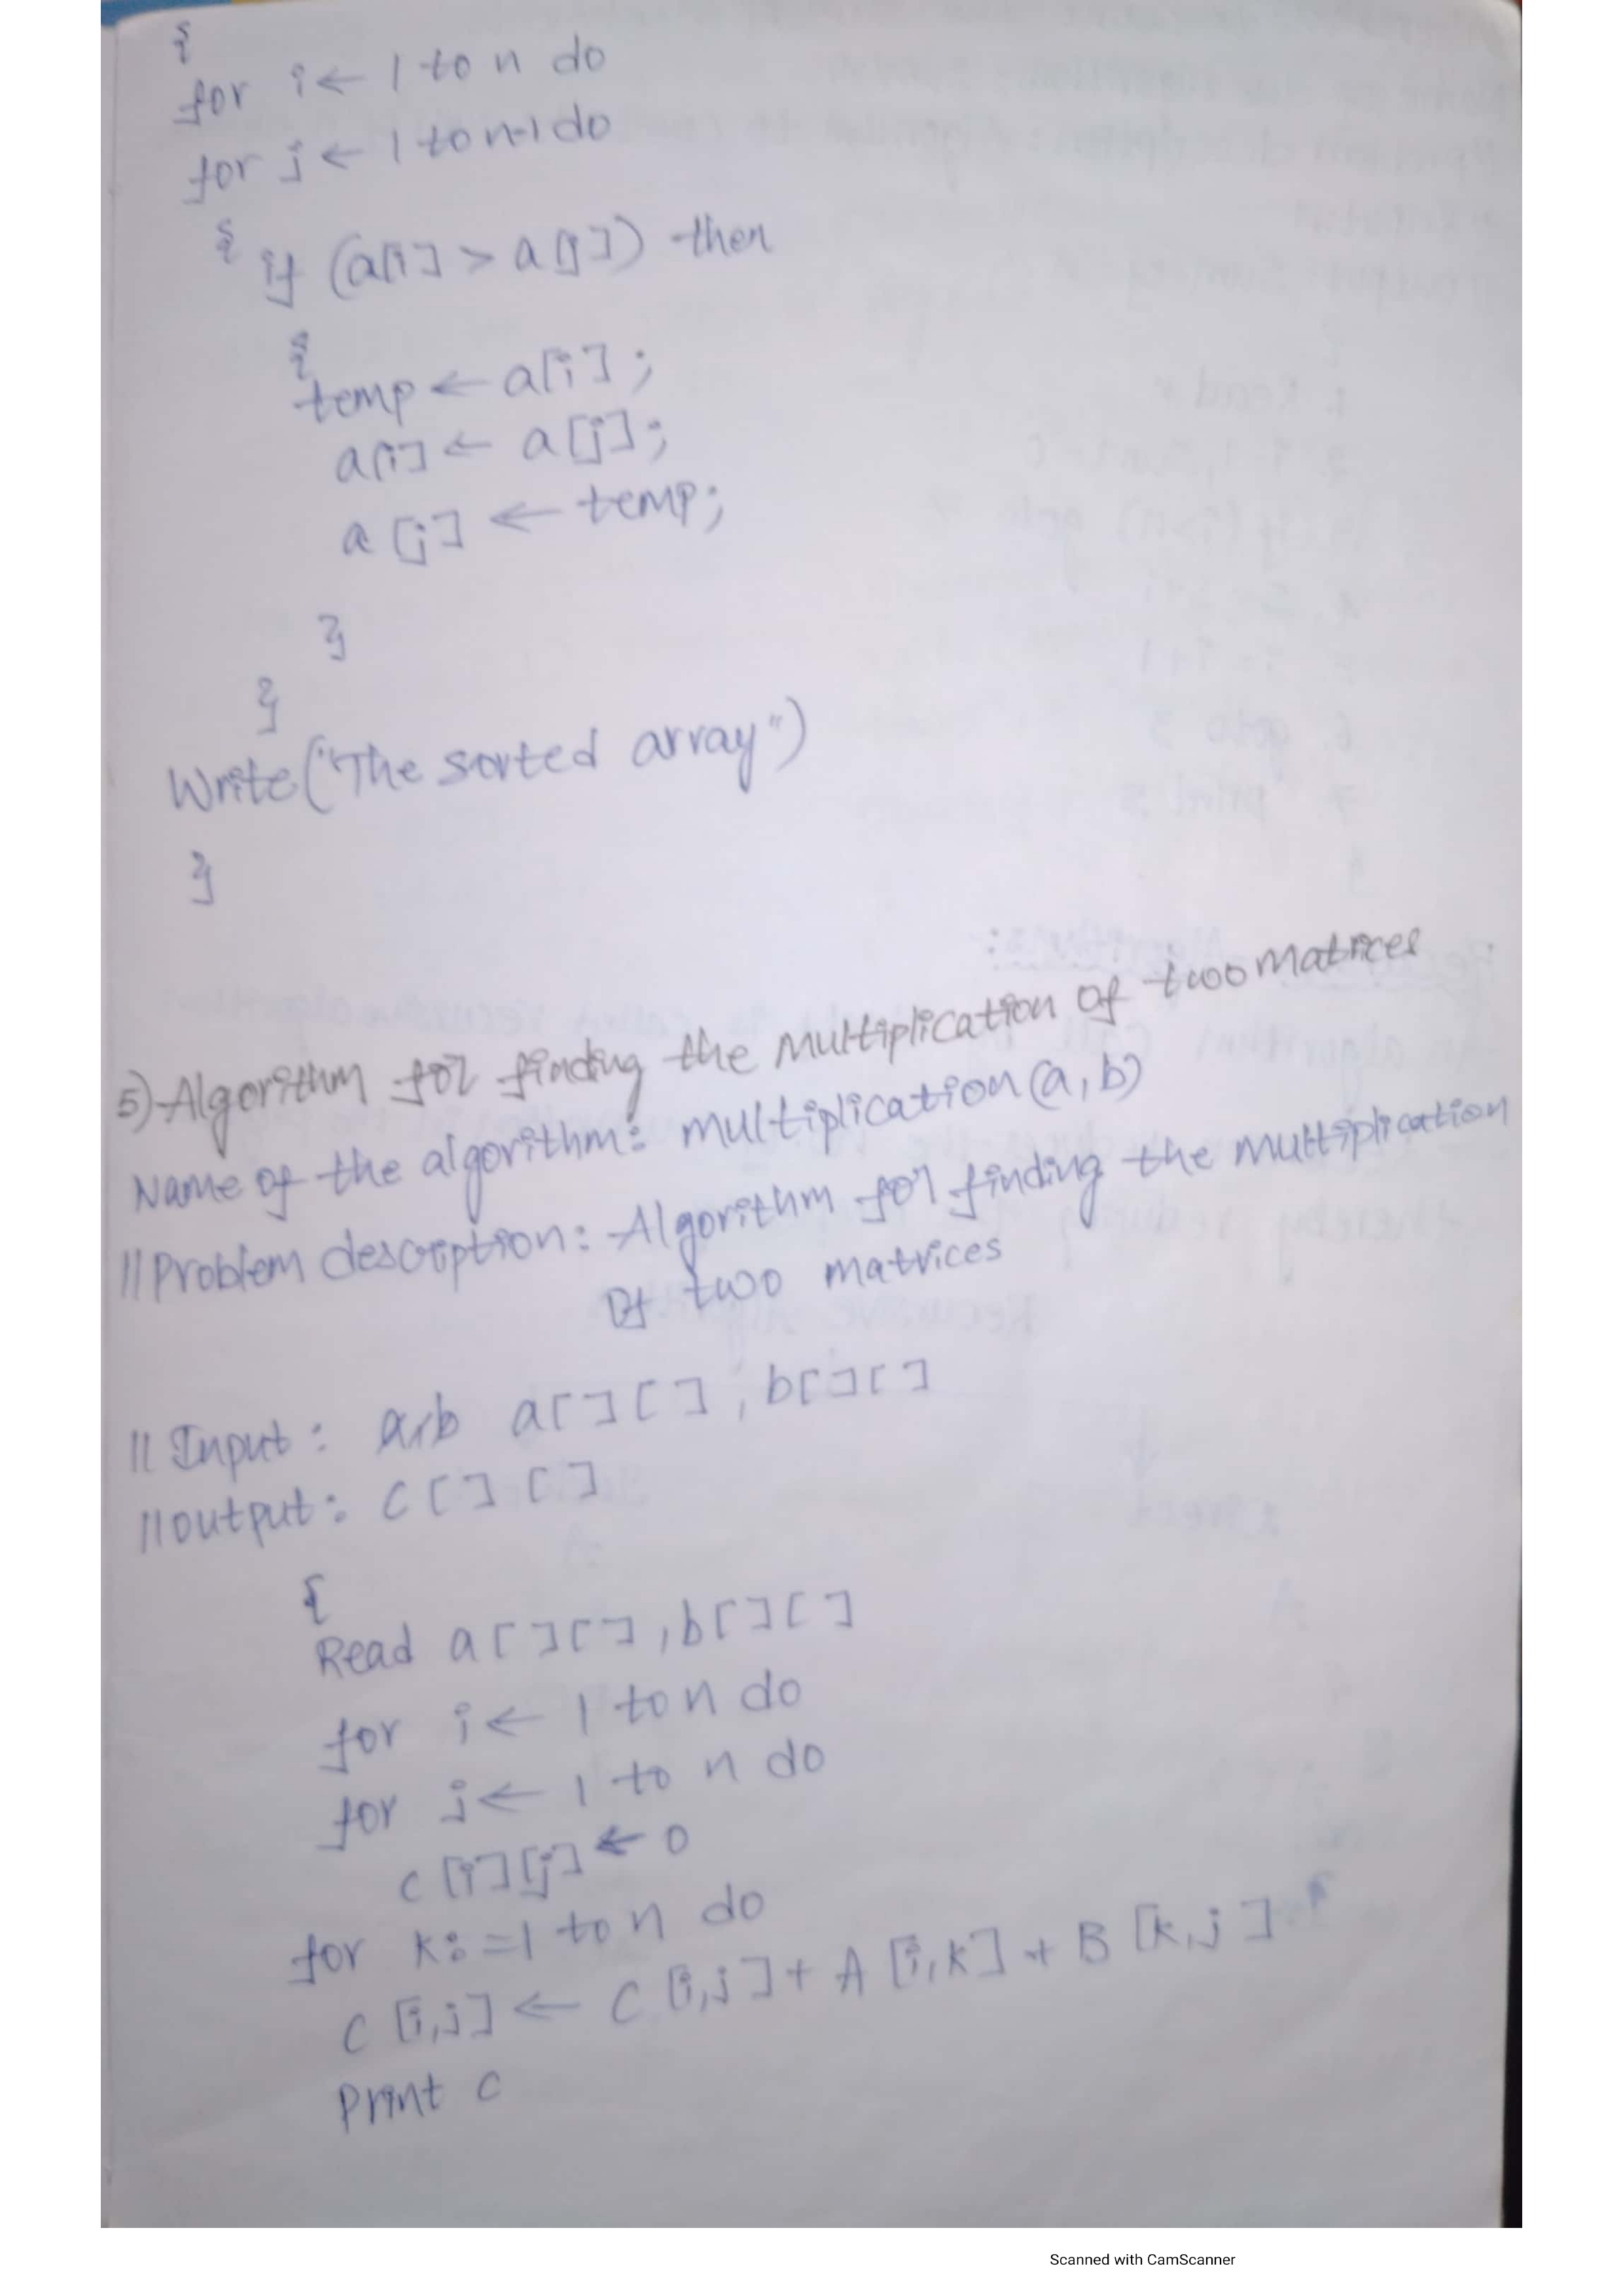 {
for i ← 1 to n do
for j ← 1 to n-1 do
{ if (a[i] > a[j]) then
{
temp ← a[i];
a[i] ← a[j];
a[j] ← temp;
}
}
Write("The sorted array")
}
5) Algorithm for finding the Multiplication of two Matrices
Name of the algorithm: multiplication(a,b)
//Problem description: Algorithm for finding the multiplication
of two matrices
//Input: a,b a[][], b[][]
//output: c[][]
{
Read a[][], b[][]
for i ← 1 to n do
for j ← 1 to n do
c[i][j] ← 0
for k:=1 to n do
C[i,j] ← C[i,j] + A[i,k] + B[k,j]
Print c
Scanned with CamScanner